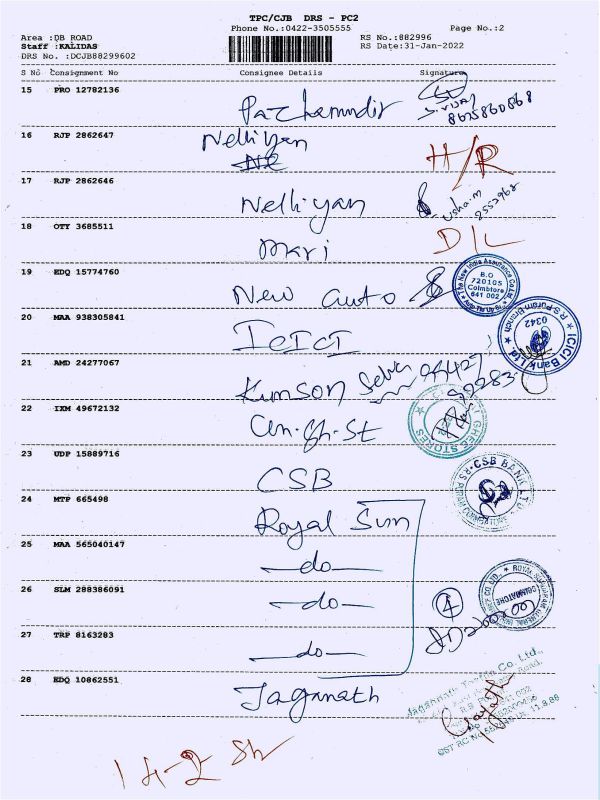 TPC/CJB DRS - PC2
Phone No.:0422-3505555 Page No.:2
Area :DB ROAD RS No.:882996
Staff :KALIDAS RS Date:31-Jan-2022
DRS No. :DCJB88299602
S No Consignment No Consignee Details Signature
15 PRO 12782136
16 RJP 2862647 Nelliyan
H/R
17 RJP 2862646 Nelliyan
18 OTY 3685511 Mari D/L
19 EDQ 15774760 New auto
The New India Assurance Co. Ltd.
B.O
720105
Coimbtore
641 002
20 MAA 938305841 ICICI
ICICI Bank Ltd. R S Puram Branch
0342
21 AMD 24277067 Kumson
22 IXM 49672132
GHEE STORES
23 UDP 15889716 CSB
CSB BANK LTD
24 MTP 665498 Royal Sun
25 MAA 565040147 do
26 SLM 288386091 do
④
27 TRP 8163283 do
28 EDQ 10862551 Jaganath
14-2 Sh